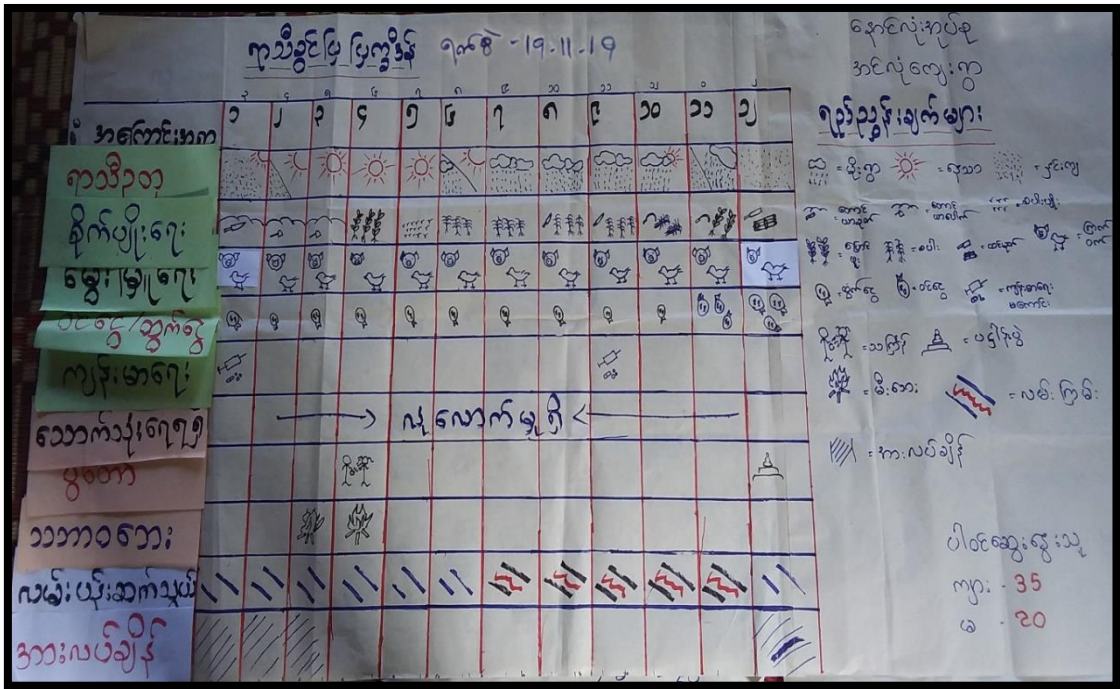 ရာသီခွင်ပြ ပြက္ခဒိန် ရက်စွဲ - 19-11-19
နောင်လုံးအုပ်စု
အင်လုံကျေးရွာ
ရည်ညွှန်းချက်များ
စဉ် အကြောင်းအရာ ၁ ၂ ၃ ၄ ၅ ၆ ၇ ၈ ၉ ၁၀ ၁၁ ၁၂
ရာသီဥတု
စိုက်ပျိုးရေး
မွေးမြူရေး
ဝင်ငွေ/ထွက်ငွေ
ကျန်းမာရေး
သောက်သုံးရေရရှိ
လုံလောက်မှုရှိ
ပွဲတော်
သဘာဝဘေး
လမ်းပန်းဆက်သွယ်
အားလပ်ချိန်
= မိုးရွာ = နေသာ = နှင်းကျ
= စပါးပျိုး
= စပါး
= ထွက်ငွေ = ဝင်ငွေ = ကျန်းမာရေး မကောင်း
= သင်္ကြန် = ပဋ္ဌာန်းပွဲ
= မီးဘေး = လမ်းကြမ်း
= အားလပ်ချိန်
ပါဝင်ဆွေးနွေးသူ
ကျား - 35
မ - 20